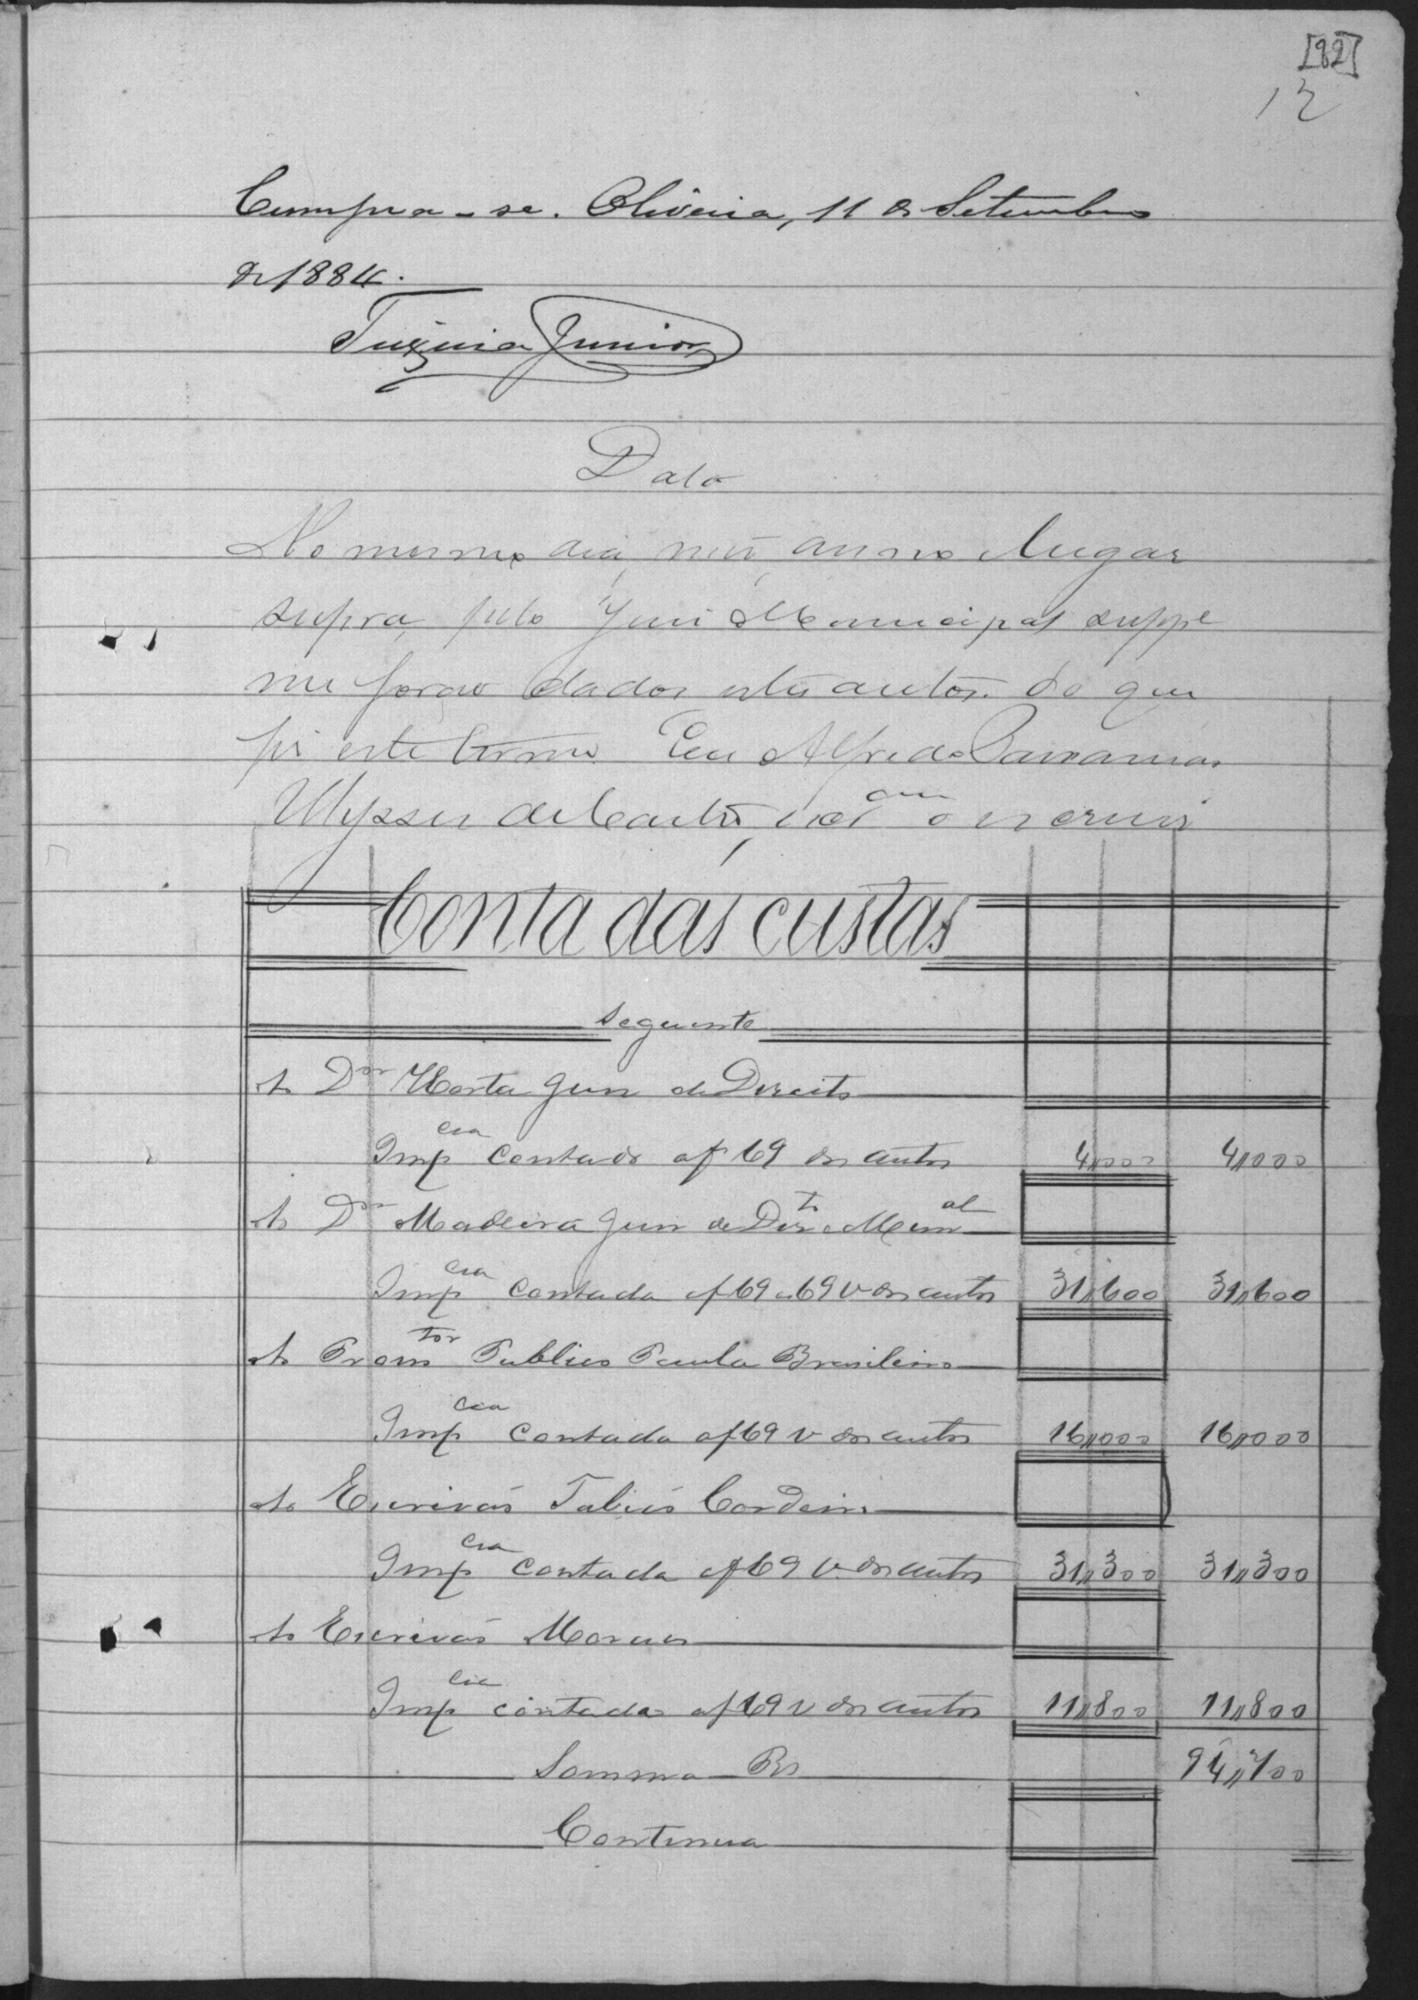 [82]
12
Cumpra-se. Oliveira, 11 de Setembro
de 1884.
Teixeira Junior
Data
No mesmo dia, mes, anno e lugar
supra, pelo Juiz Municipal suppe
me forão dados estes autos. do que
fiz este termo. Eu Alfredo
Ulysses de Castro, o escrevi
Conta das custas
Seguinte
Ao Dor Horta Juiz de Direito
Impcia contado af 69 dos autos 4,,000 4,,000
Ao Dor Madeira Juiz de Dirto e Munal
Impcia contada af 69 a 69 v dos autos 31,,600 31,,600
Ao Promtor Publico Paula Brasileiro
Impcia contada af 69 v dos autos 16,,000 16,,000
Ao Escrivão Tobias Cordeiro
Impcia contada af 69 v. dos autos 31,,300 31,,300
Ao Escrivão Moraes
Impcia contada af 69 v dos autos 11,,800 11,,800
Somma Rs 94,,700
Continua